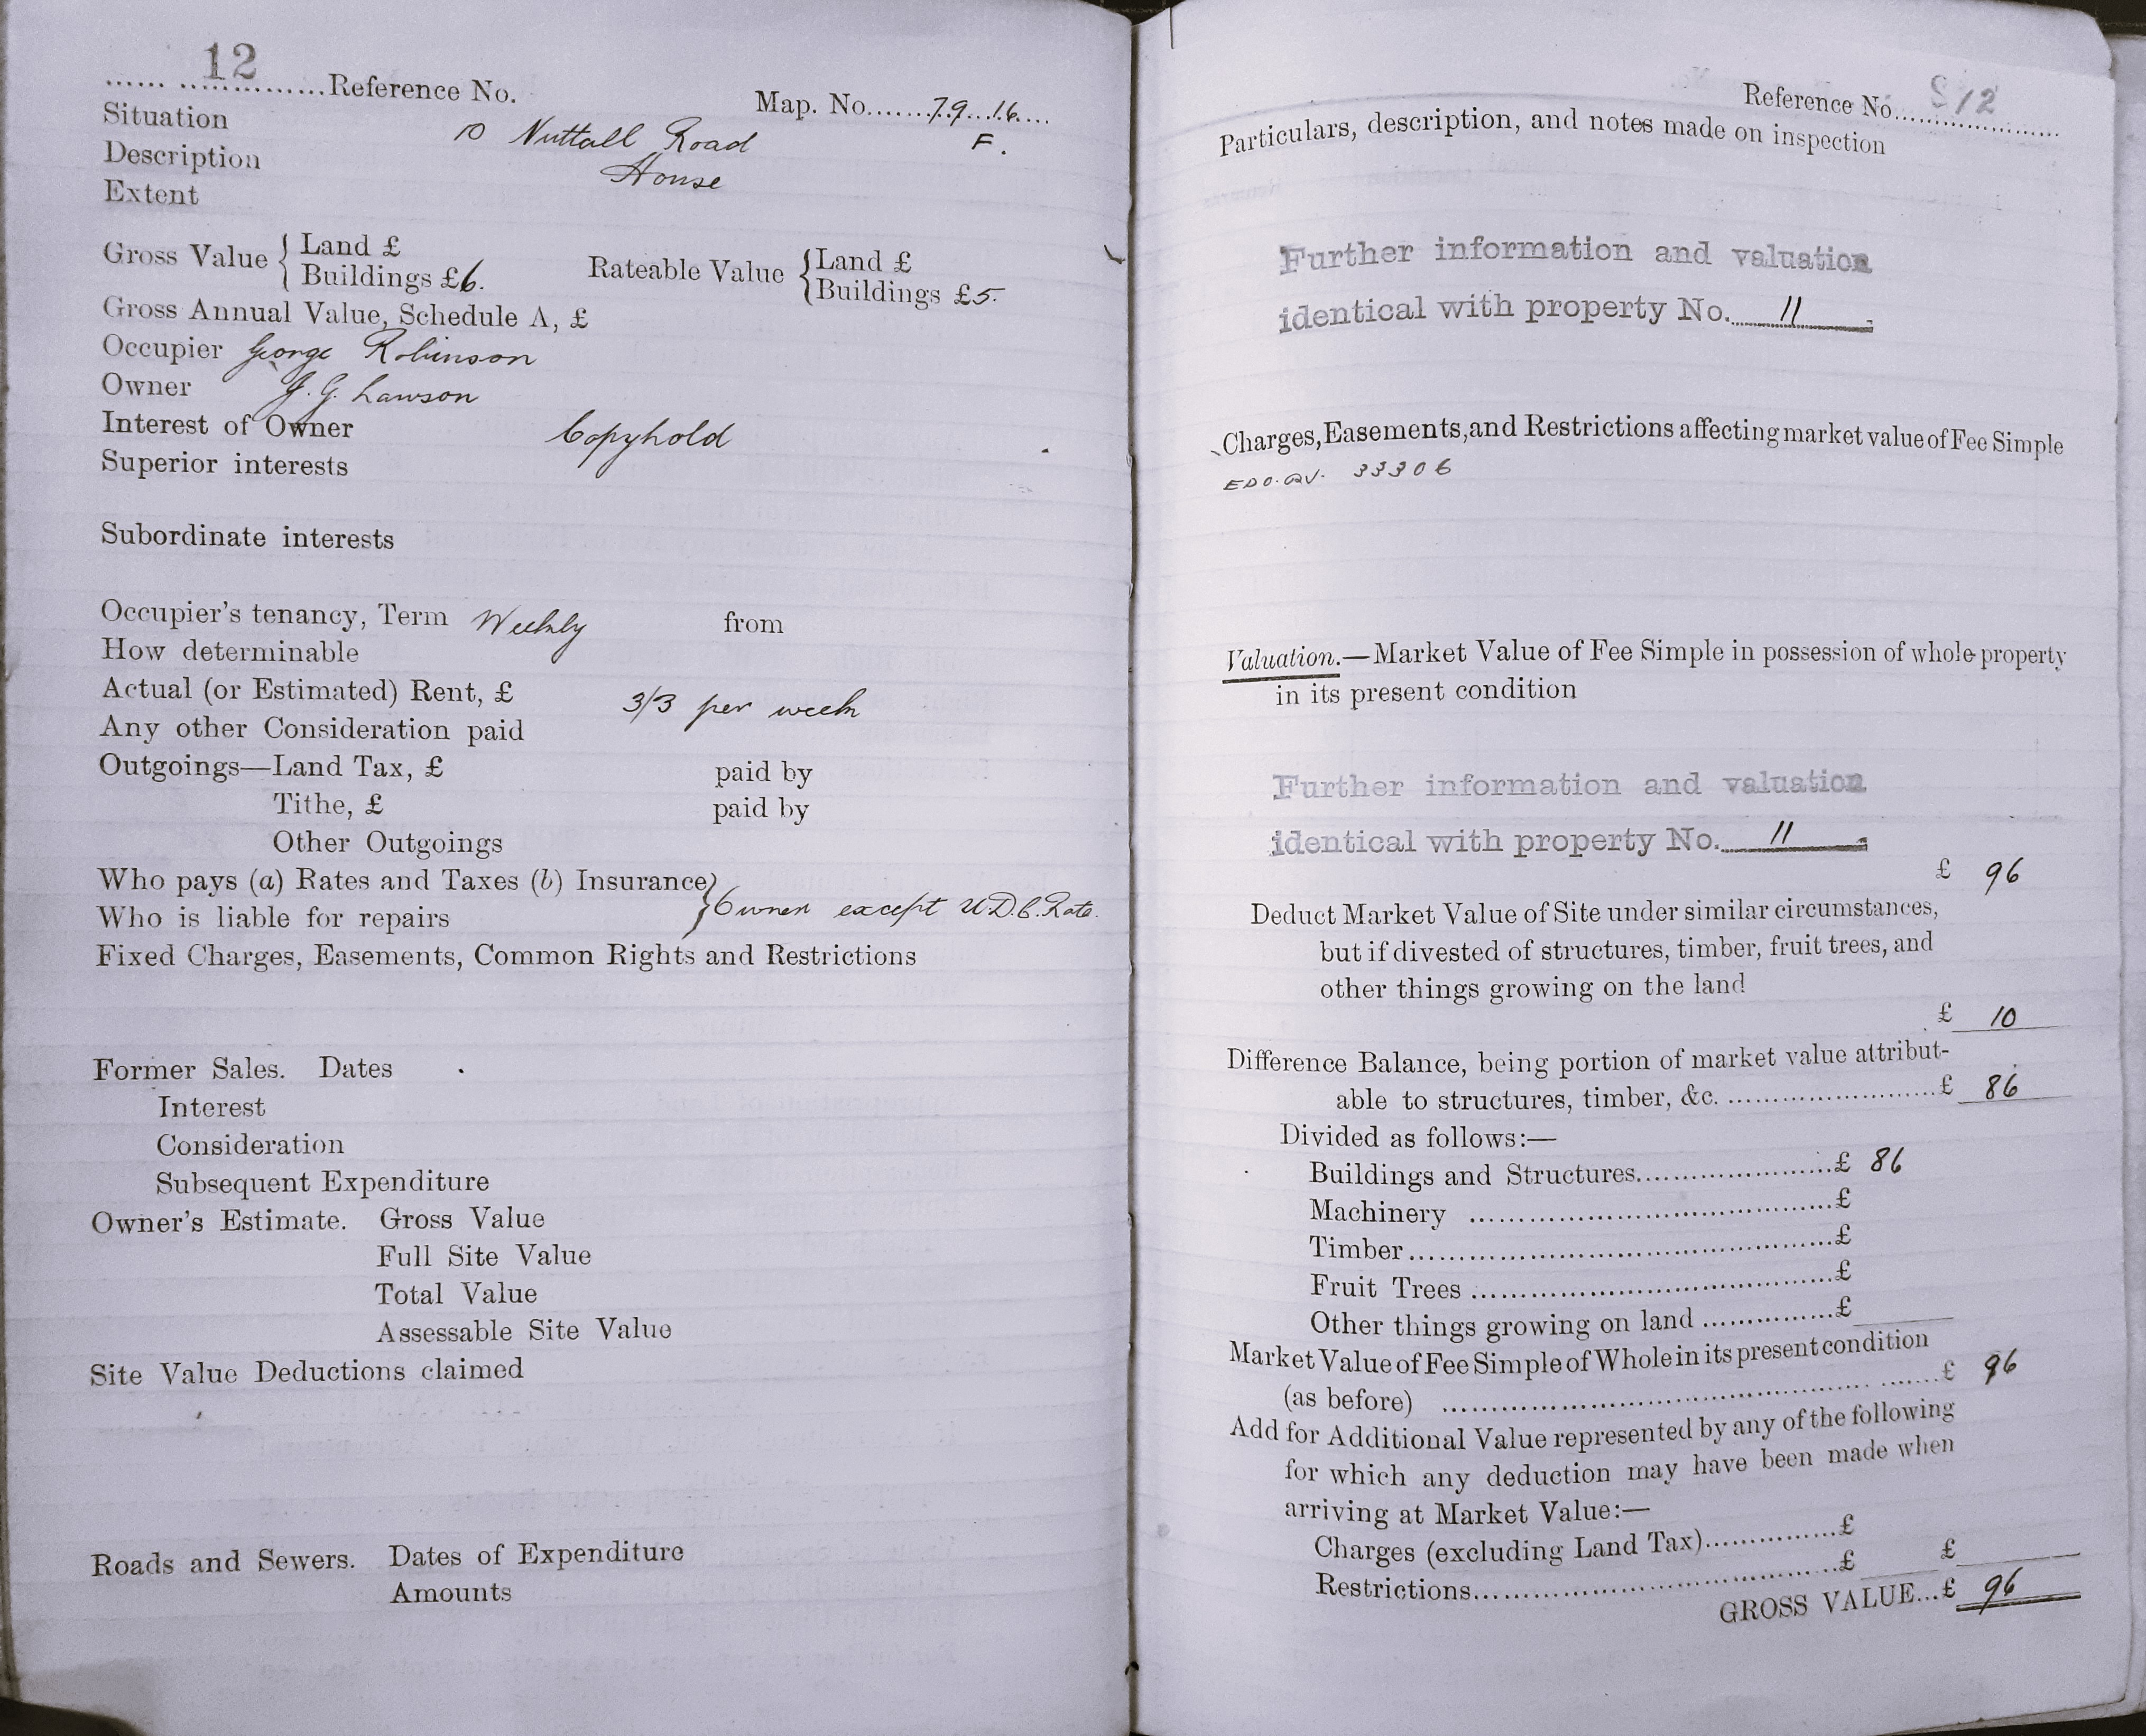 12
Reference No.
Map. No. 79.16.
Situation 10 Nuttall Road F.
Description House
Extent
Gross Value { Land £
Buildings £6.
Rateable Value { Land £
Buildings £5.
Gross Annual Value, Schedule A, £
Occupier George Robinson
Owner J. G. Lawson
Interest of Owner Copyhold
Superior interests
Subordinate interests
Occupier's tenancy, Term Weekly from
How determinable
Actual (or Estimated) Rent, £ 3/3 per week
Any other Consideration paid
Outgoings—Land Tax, £ paid by
Tithe, £ paid by
Other Outgoings
Who pays (a) Rates and Taxes (b) Insurance }
Who is liable for repairs } Owner except U.D.C. Rate.
Fixed Charges, Easements, Common Rights and Restrictions
Former Sales. Dates
Interest
Consideration
Subsequent Expenditure
Owner's Estimate. Gross Value
Full Site Value
Total Value
Assessable Site Value
Site Value Deductions claimed
Roads and Sewers. Dates of Expenditure
Amounts
Reference No. 12
Particulars, description, and notes made on inspection
Further information and valuation
identical with property No. 11.
Charges, Easements, and Restrictions affecting market value of Fee Simple
33306
Valuation.—Market Value of Fee Simple in possession of whole property
in its present condition
Further information and valuation
identical with property No. 11.
£ 96
Deduct Market Value of Site under similar circumstances,
but if divested of structures, timber, fruit trees, and
other things growing on the land
£ 10
Difference Balance, being portion of market value attribut-
able to structures, timber, &c. £ 86
Divided as follows:—
Buildings and Structures £ 86
Machinery £
Timber £
Fruit Trees £
Other things growing on land £
Market Value of Fee Simple of Whole in its present condition
(as before) £ 96
Add for Additional Value represented by any of the following
for which any deduction may have been made when
arriving at Market Value:—
Charges (excluding Land Tax) £
Restrictions £ £
GROSS VALUE...£ 96